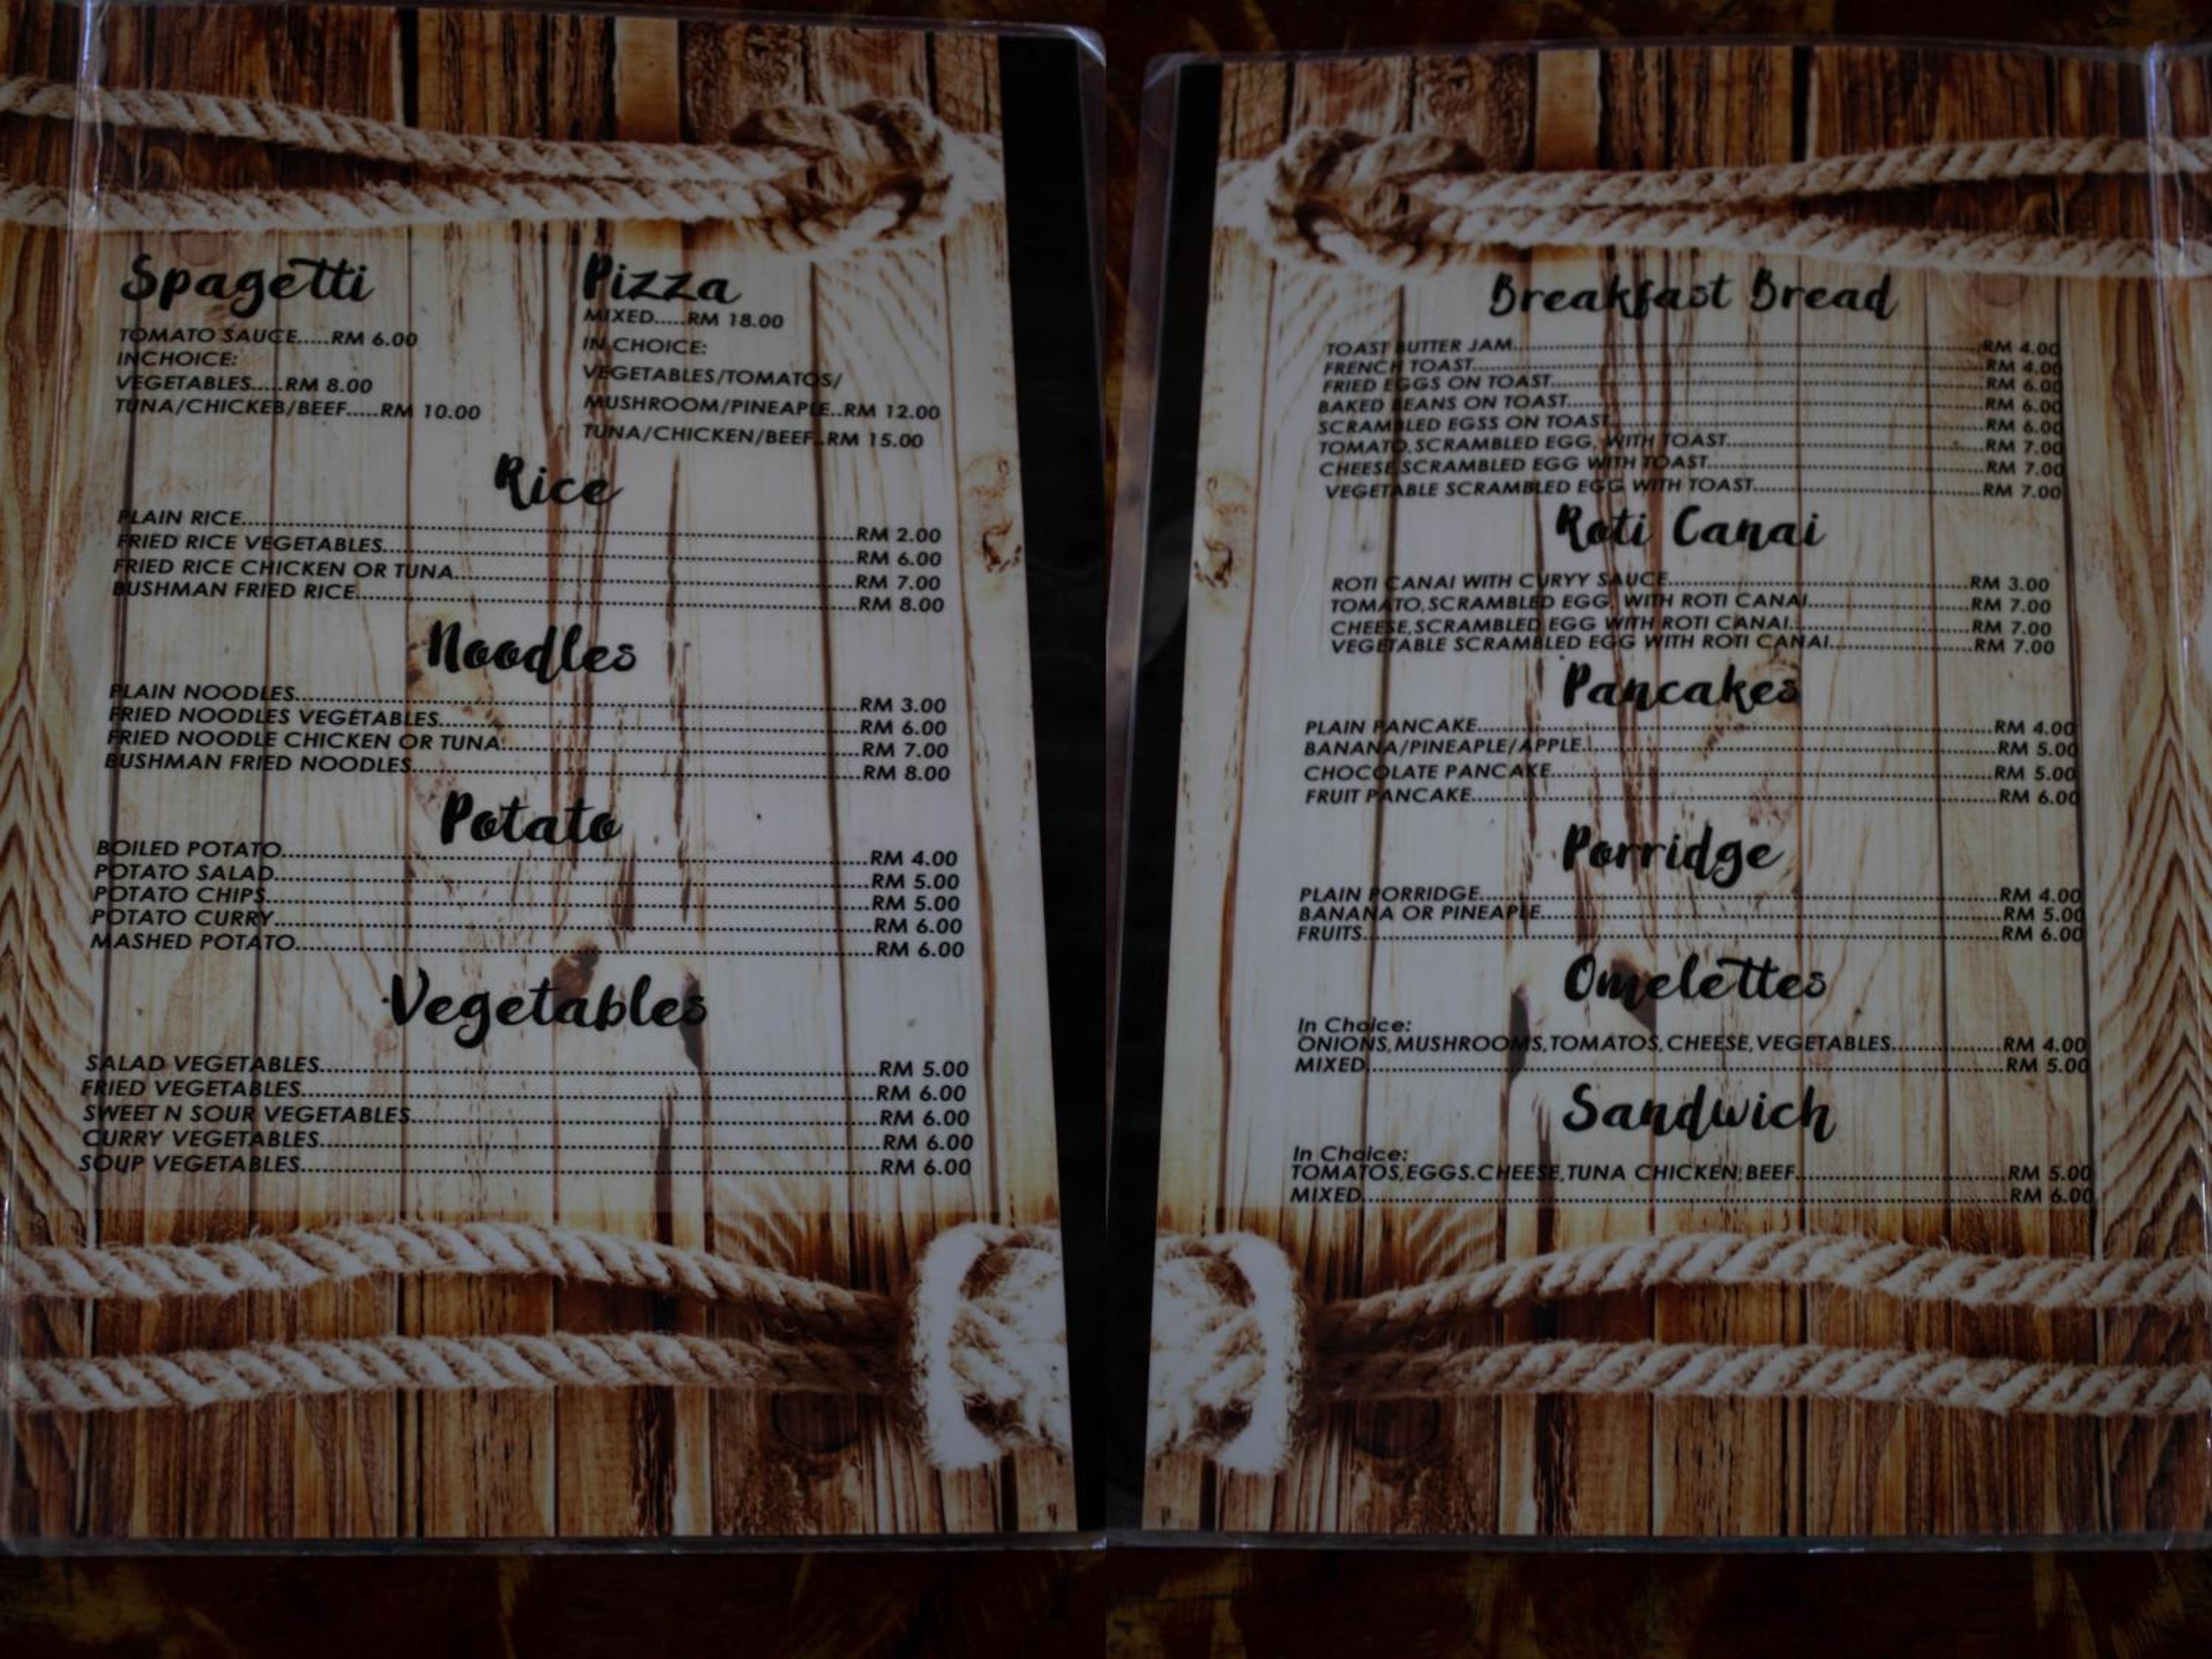 Spagetti
TOMATO SAUCE.....RM 6.00
INCHOICE:
VEGETABLES.....RM 8.00
TUNA/CHICKEB/BEEF.....RM 10.00
Pizza
MIXED.....RM 18.00
IN CHOICE:
VEGETABLES/TOMATOS/
MUSHROOM/PINEAPLE..RM 12.00
TUNA/CHICKEN/BEEF..RM 15.00
Rice
PLAIN RICE.....RM 2.00
FRIED RICE VEGETABLES.....RM 6.00
FRIED RICE CHICKEN OR TUNA.....RM 7.00
BUSHMAN FRIED RICE.....RM 8.00
Noodles
PLAIN NOODLES.....RM 3.00
FRIED NOODLES VEGETABLES.....RM 6.00
FRIED NOODLE CHICKEN OR TUNA.....RM 7.00
BUSHMAN FRIED NOODLES.....RM 8.00
Potato
BOILED POTATO.....RM 4.00
POTATO SALAD.....RM 5.00
POTATO CHIPS.....RM 5.00
POTATO CURRY.....RM 6.00
MASHED POTATO.....RM 6.00
Vegetables
SALAD VEGETABLES.....RM 5.00
FRIED VEGETABLES.....RM 6.00
SWEET N SOUR VEGETABLES.....RM 6.00
CURRY VEGETABLES.....RM 6.00
SOUP VEGETABLES.....RM 6.00
Breakfast Bread
TOAST BUTTER JAM.....RM 4.00
FRENCH TOAST.....RM 4.00
FRIED EGGS ON TOAST.....RM 6.00
BAKED BEANS ON TOAST.....RM 6.00
SCRAMBLED EGSS ON TOAST.....RM 6.00
TOMATO,SCRAMBLED EGG, WITH TOAST.....RM 7.00
CHEESE SCRAMBLED EGG WITH TOAST.....RM 7.00
VEGETABLE SCRAMBLED EGG WITH TOAST.....RM 7.00
Roti Canai
ROTI CANAI WITH CURYY SAUCE.....RM 3.00
TOMATO,SCRAMBLED EGG, WITH ROTI CANAI.....RM 7.00
CHEESE,SCRAMBLED EGG WITH ROTI CANAI.....RM 7.00
VEGETABLE SCRAMBLED EGG WITH ROTI CANAI.....RM 7.00
Pancakes
PLAIN PANCAKE.....RM 4.00
BANANA/PINEAPLE/APPLE.....RM 5.00
CHOCOLATE PANCAKE.....RM 5.00
FRUIT PANCAKE.....RM 6.00
Porridge
PLAIN PORRIDGE.....RM 4.00
BANANA OR PINEAPLE.....RM 5.00
FRUITS.....RM 6.00
Omelettes
In Choice:
ONIONS,MUSHROOMS,TOMATOS,CHEESE,VEGETABLES.....RM 4.00
MIXED.....RM 5.00
Sandwich
In Choice:
TOMATOS,EGGS.CHEESE,TUNA CHICKEN,BEEF.....RM 5.00
MIXED.....RM 6.00